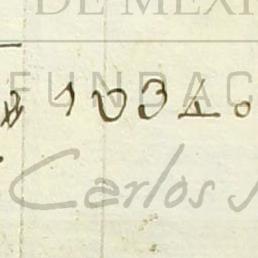 DE MEXI
FUNDAC
1034.0
Carlos